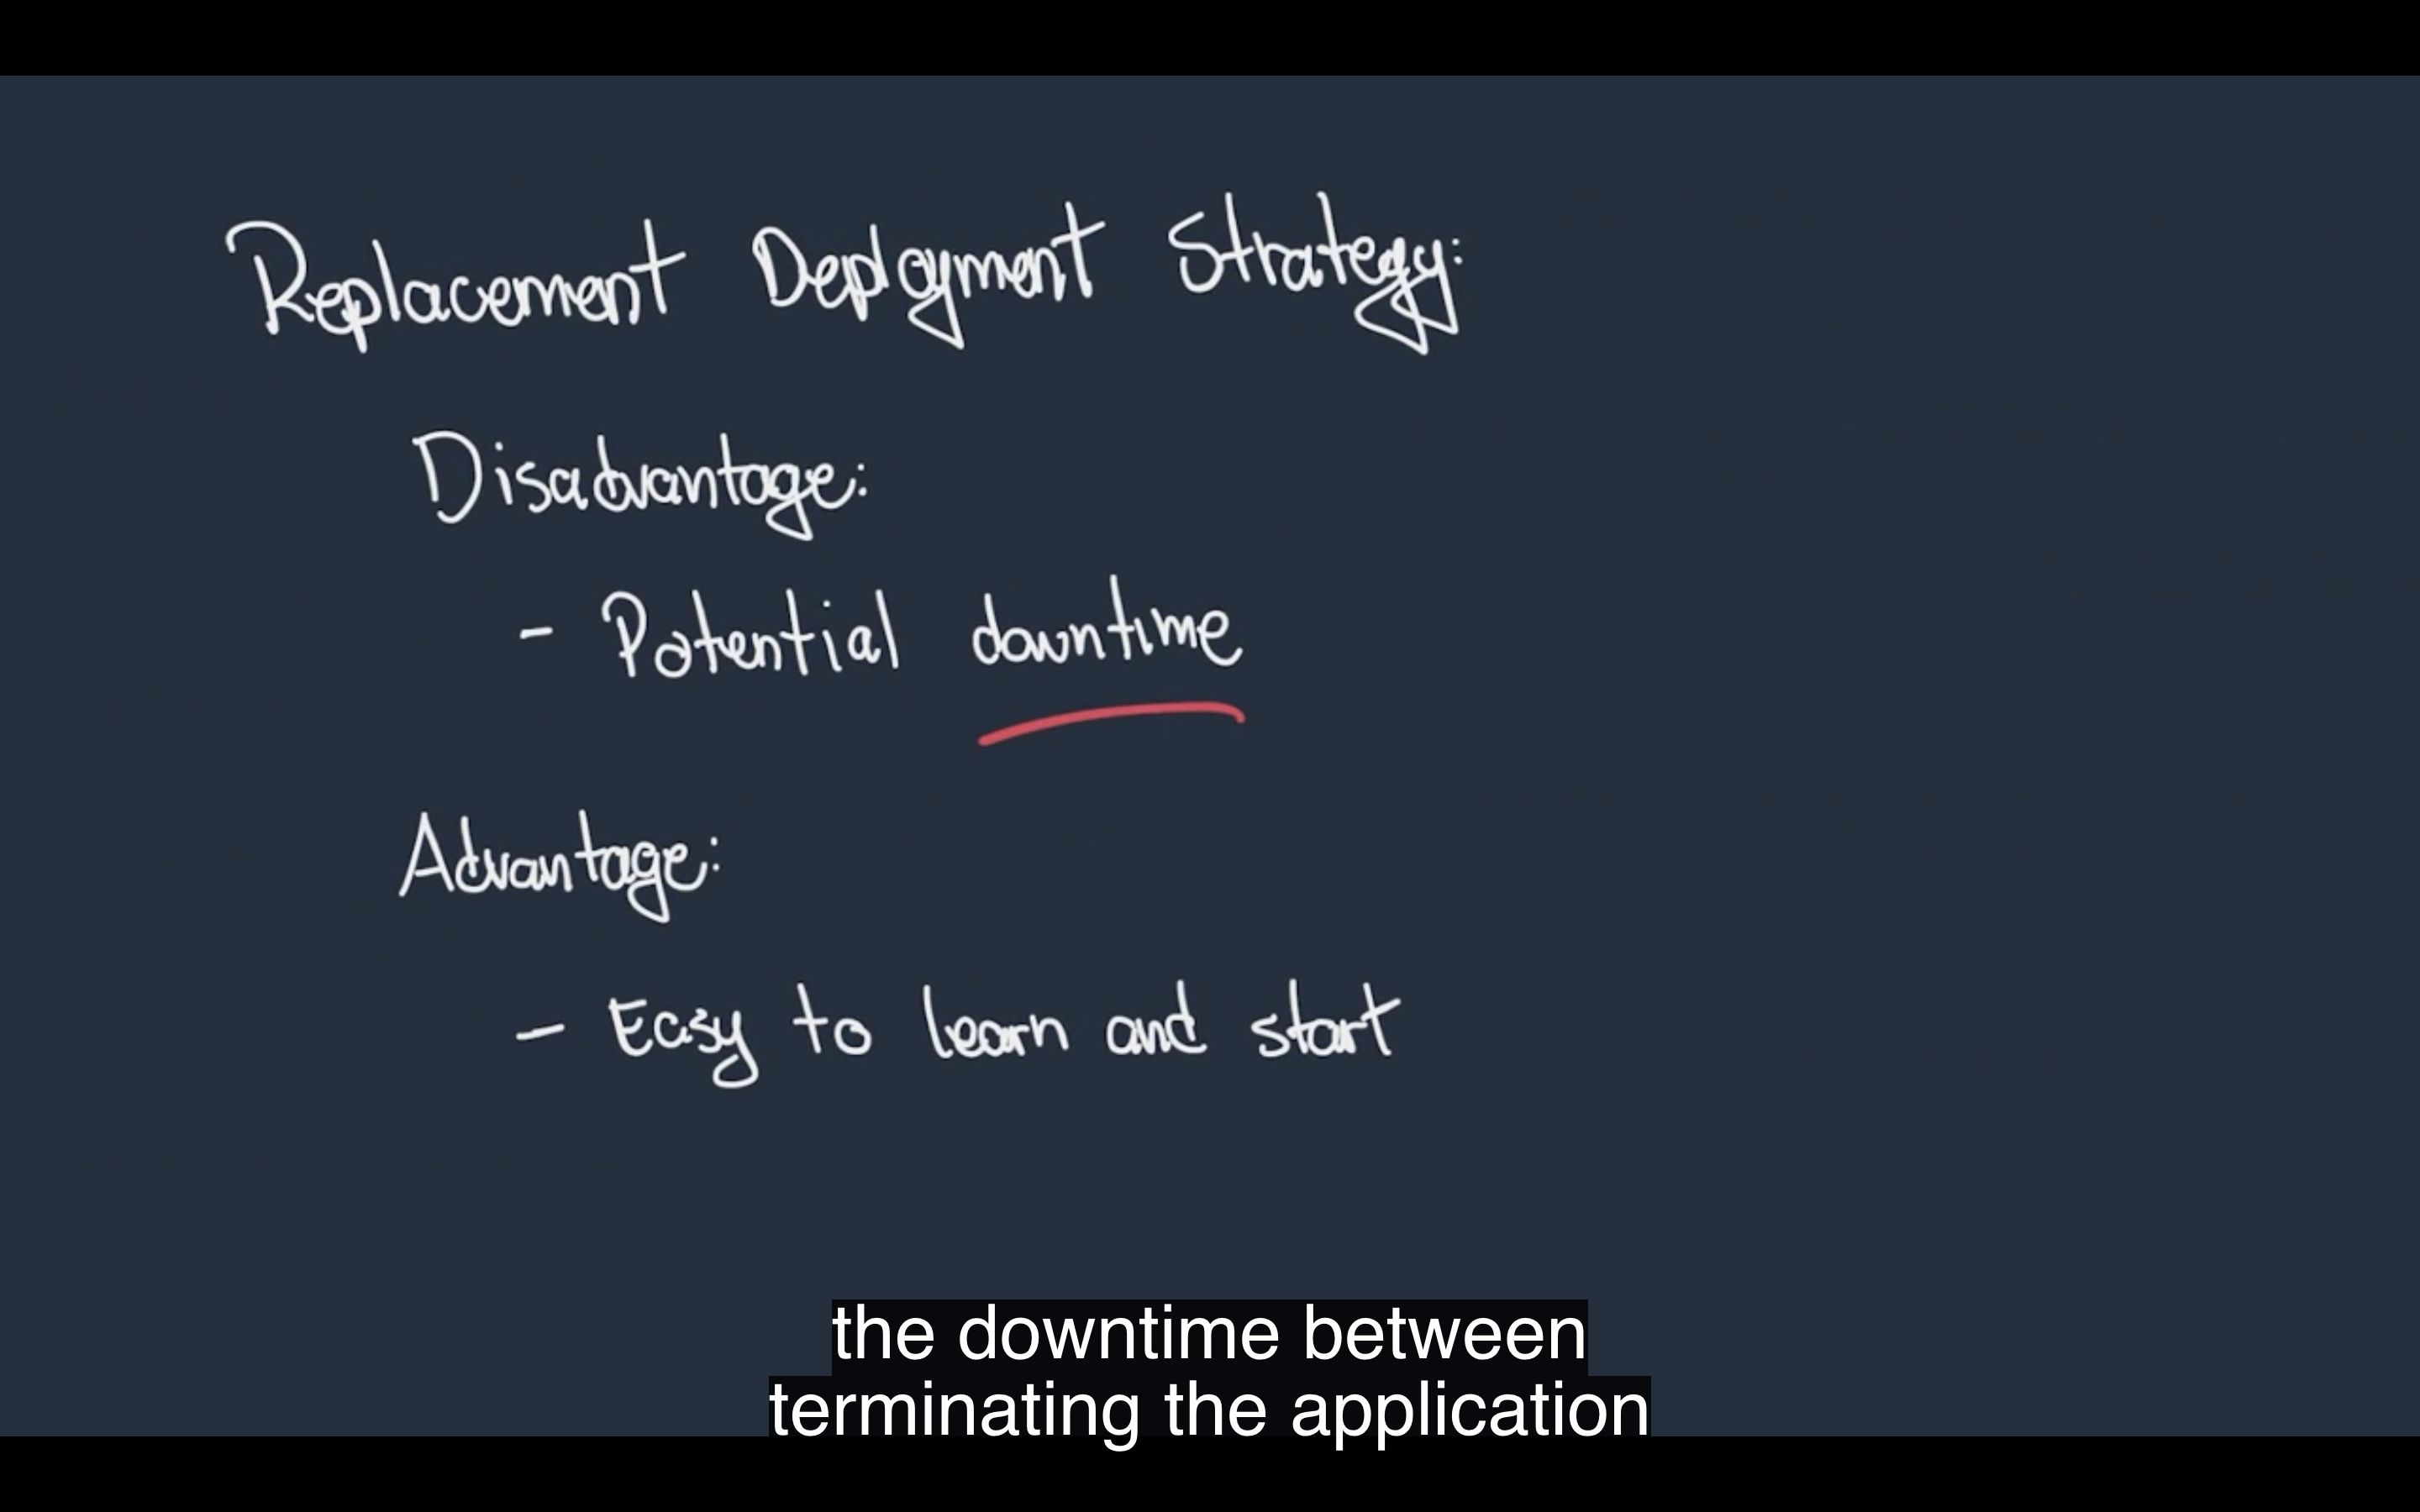 Replacement Deployment Strategy:
Disadvantage:
- Potential downtime
Advantage:
- Easy to learn and start
the downtime between
terminating the application